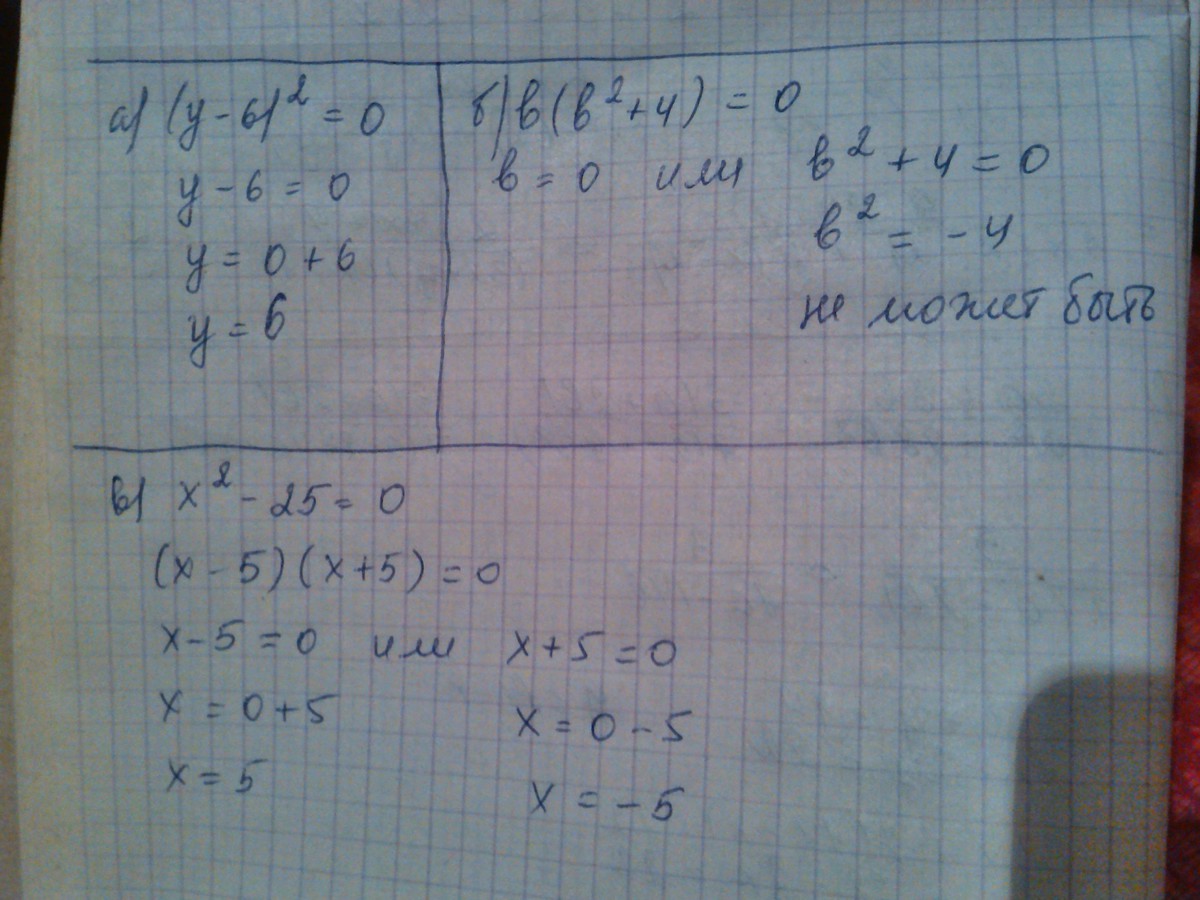 а) (y-6)² = 0
y-6 = 0
y = 0+6
y = 6
б) в(в²+4) = 0
в = 0 или в²+4 = 0
в² = -4
не может быть
в) x²-25 = 0
(x-5)(x+5) = 0
x-5 = 0 или x+5 = 0
x = 0+5 x = 0-5
x = 5 x = -5